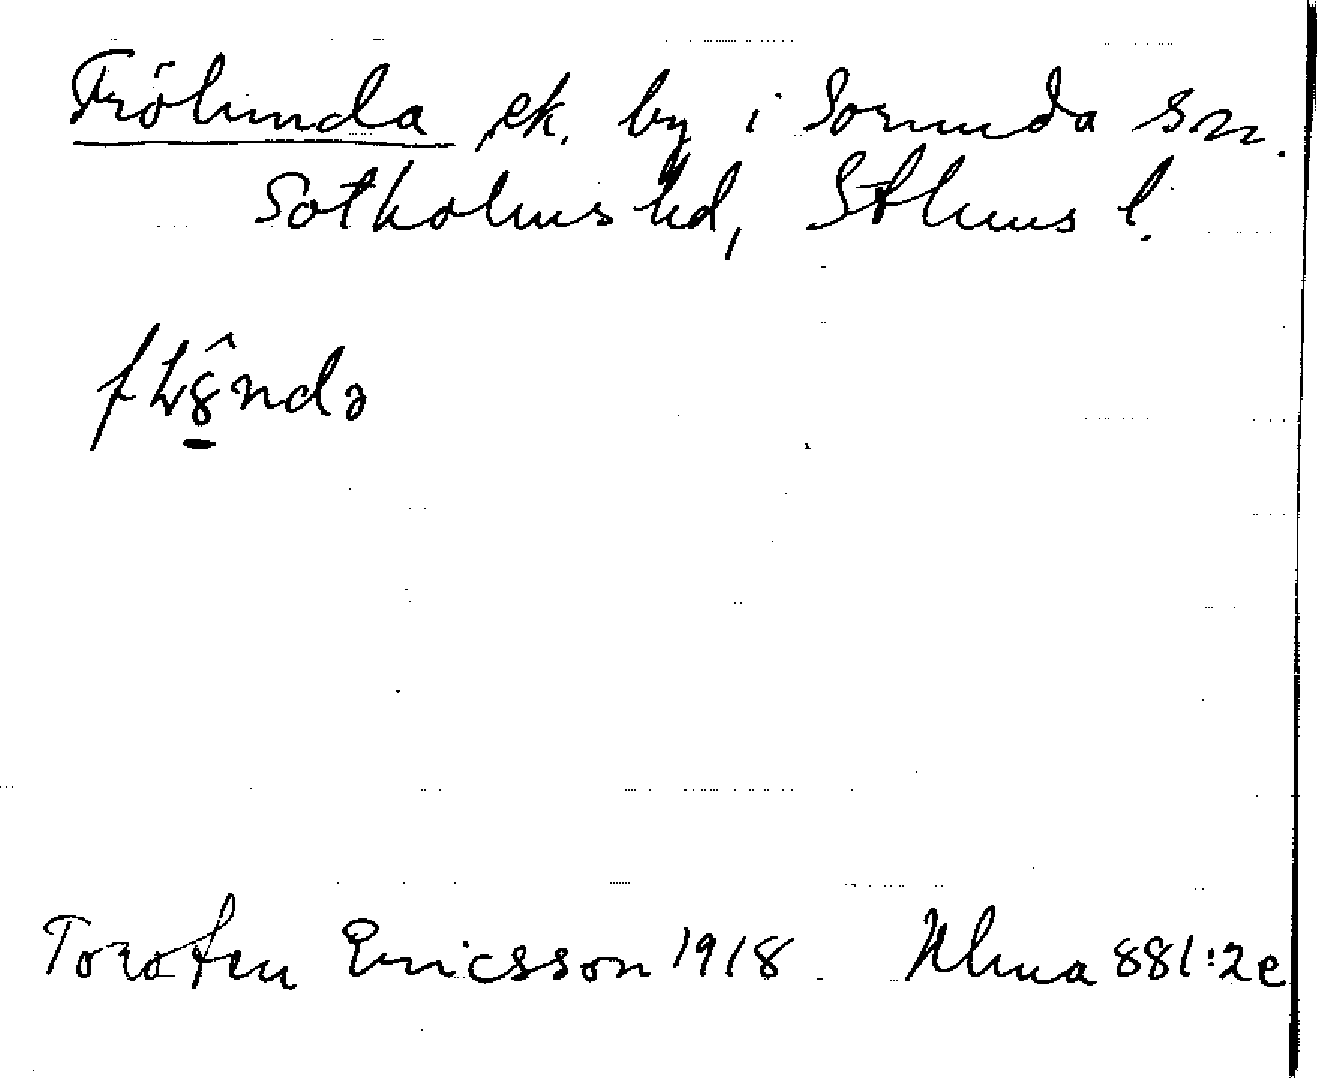 Frölunda ek. by i Sorunda sn.
Sotholms hd, Sthms l.
Torsten Ericsson 1918 Ulma 881:2e